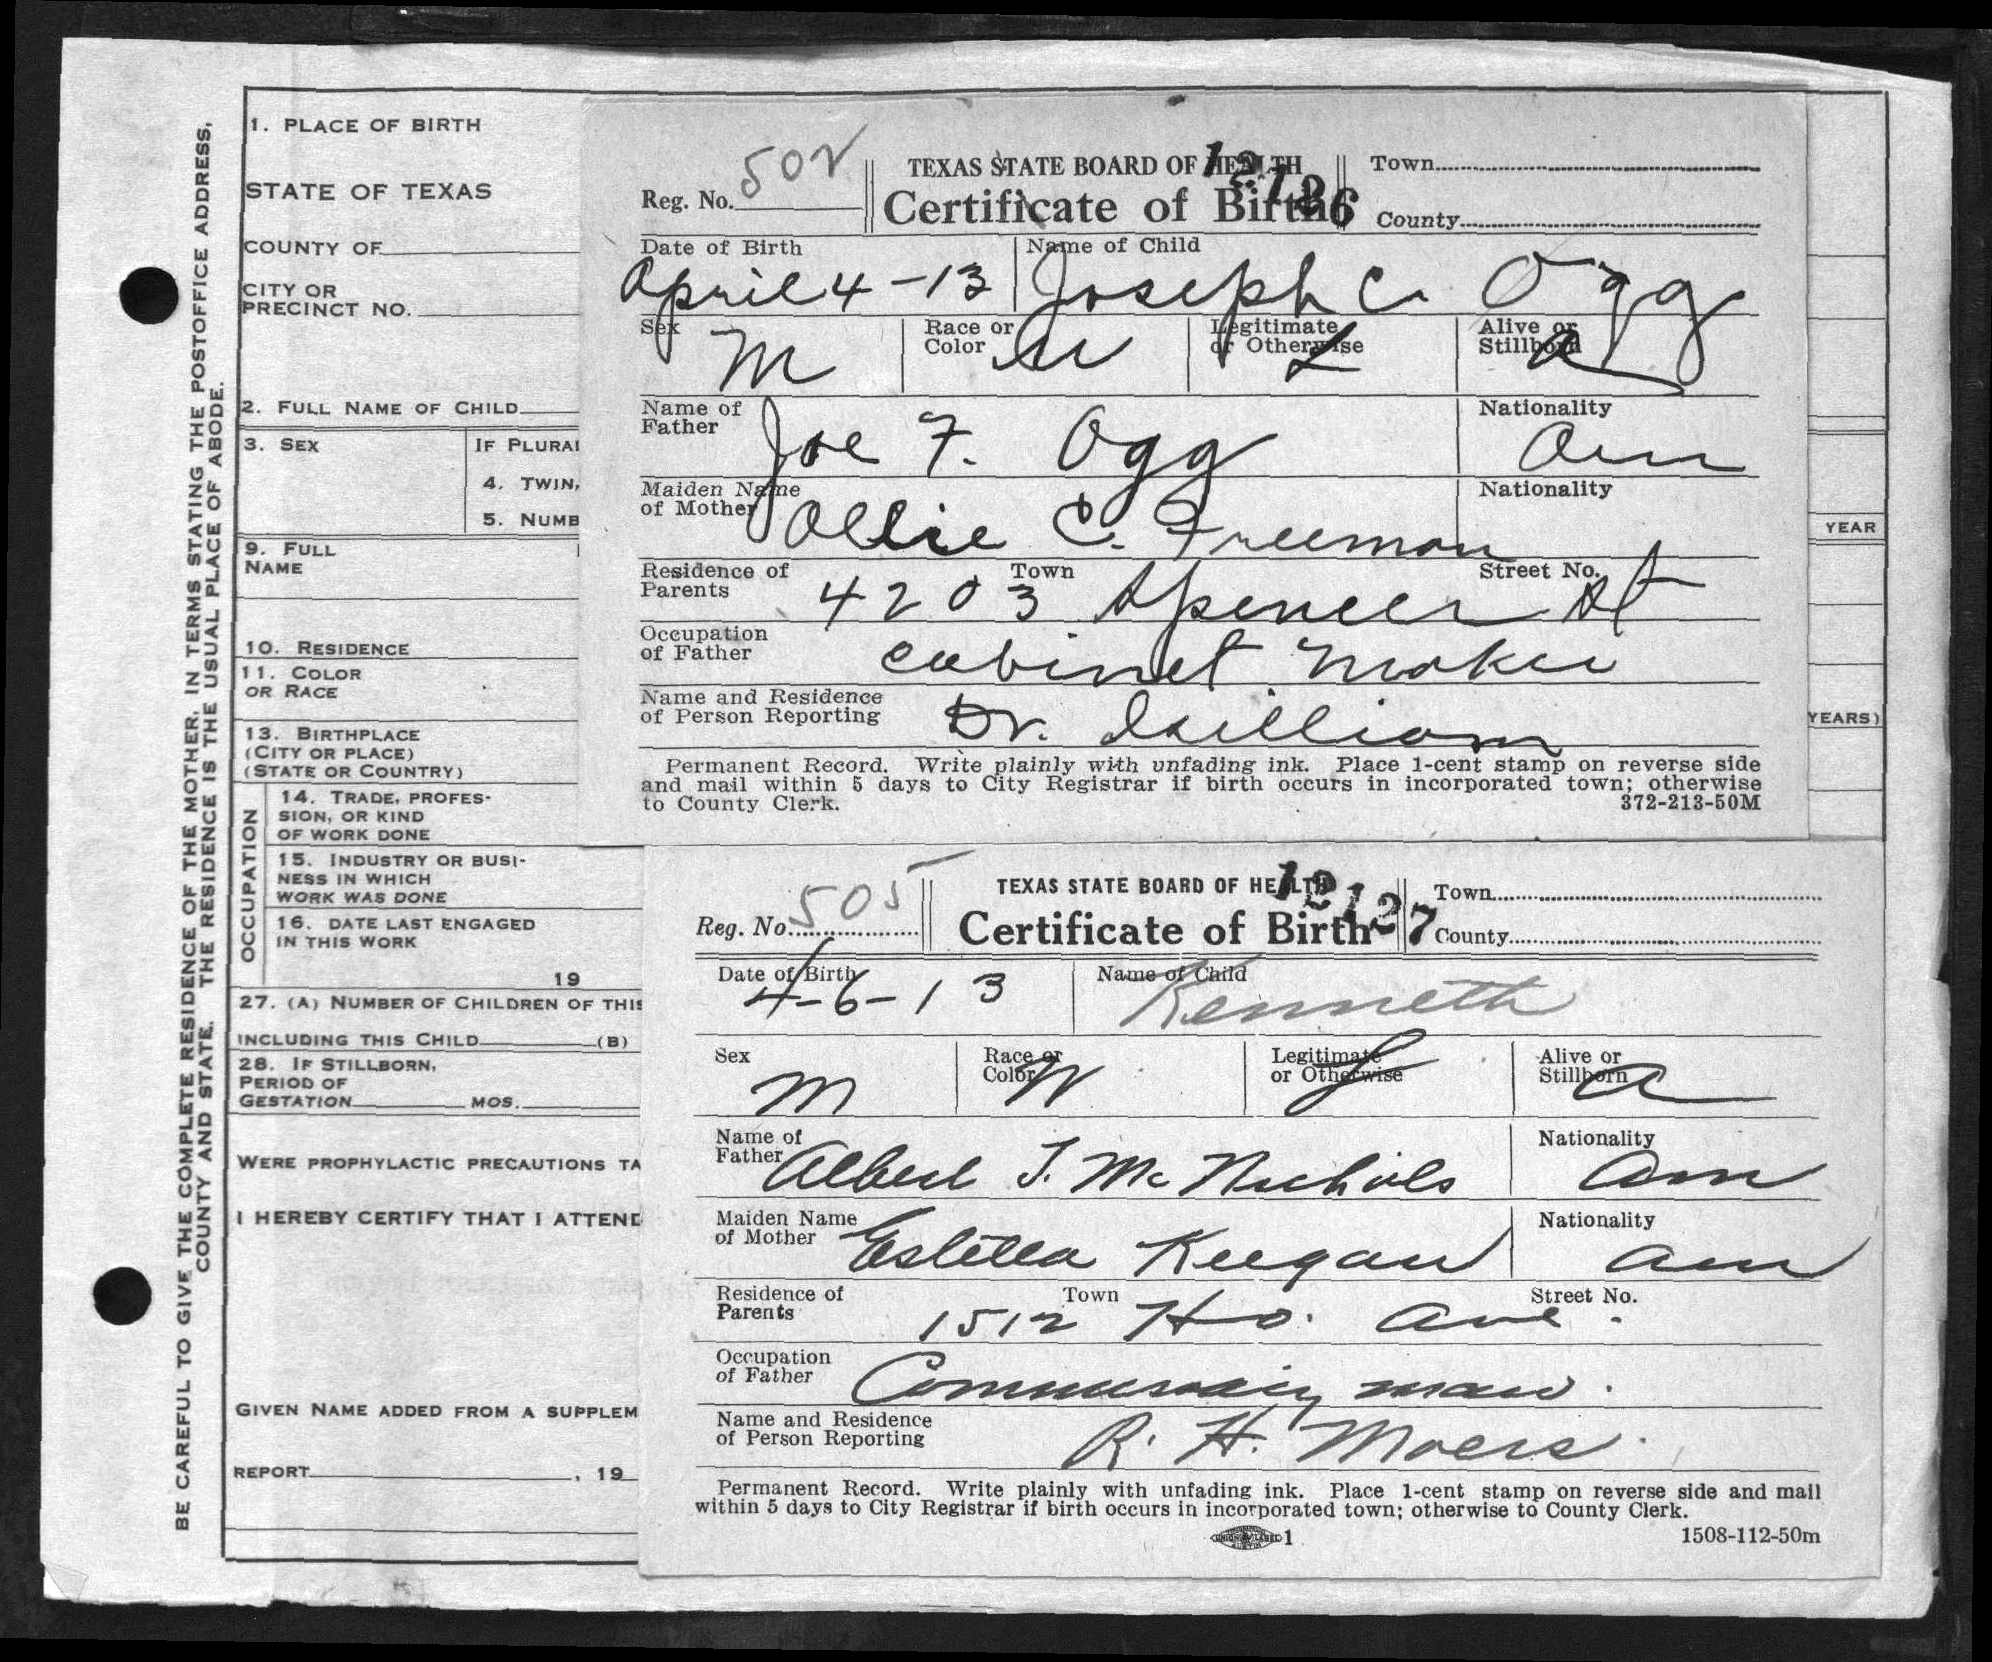 BE CAREFUL TO GIVE THE COMPLETE RESIDENCE OF THE MOTHER, IN TERMS STATING THE POSTOFFICE ADDRESS,
COUNTY AND STATE. THE RESIDENCE IS THE USUAL PLACE OF ABODE.
1. PLACE OF BIRTH
STATE OF TEXAS
COUNTY OF
CITY OR
PRECINCT NO.
2. FULL NAME OF CHILD
3. SEX
IF PLURAL
4. TWIN,
5. NUMB
9. FULL
NAME
10. RESIDENCE
11. COLOR
OR RACE
13. BIRTHPLACE
(CITY OR PLACE)
(STATE OR COUNTRY)
OCCUPATION
14. TRADE, PROFES-
SION, OR KIND
OF WORK DONE
15. INDUSTRY OR BUSI-
NESS IN WHICH
WORK WAS DONE
16. DATE LAST ENGAGED
IN THIS WORK
19
27. (A) NUMBER OF CHILDREN OF THIS
INCLUDING THIS CHILD (B)
28. IF STILLBORN,
PERIOD OF
GESTATION MOS.
WERE PROPHYLACTIC PRECAUTIONS TA
I HEREBY CERTIFY THAT I ATTEND
GIVEN NAME ADDED FROM A SUPPLEM
REPORT , 19
YEAR
YEARS)
Reg. No. 502
TEXAS STATE BOARD OF HEALTH
Certificate of Birth
12126
Town
County
Date of Birth April 4-13
Name of Child Joseph C. Ogg
Sex M
Race or Color W
Legitimate or Otherwise L
Alive or Stillborn A
Name of Father Joe F. Ogg
Nationality Am
Maiden Name of Mother Ollie C. Freeman
Nationality
Residence of Parents Town Street No.
4203 Spencer St
Occupation of Father Cabinet Maker
Name and Residence of Person Reporting Dr.
Permanent Record. Write plainly with unfading ink. Place 1-cent stamp on reverse side
and mail within 5 days to City Registrar if birth occurs in incorporated town; otherwise
to County Clerk. 372-213-50M
Reg. No. 505
TEXAS STATE BOARD OF HEALTH
Certificate of Birth
12127
Town
County
Date of Birth 4-6-13
Name of Child Kenneth
Sex M
Race or Color W
Legitimate or Otherwise L
Alive or Stillborn A
Name of Father Albert J. McNichols
Nationality Am
Maiden Name of Mother Estella Keegan
Nationality Am
Residence of Parents Town Street No.
1512 Ho. Ave.
Occupation of Father man.
Name and Residence of Person Reporting R. H. Moers.
Permanent Record. Write plainly with unfading ink. Place 1-cent stamp on reverse side and mail
within 5 days to City Registrar if birth occurs in incorporated town; otherwise to County Clerk.
1
1508-112-50m